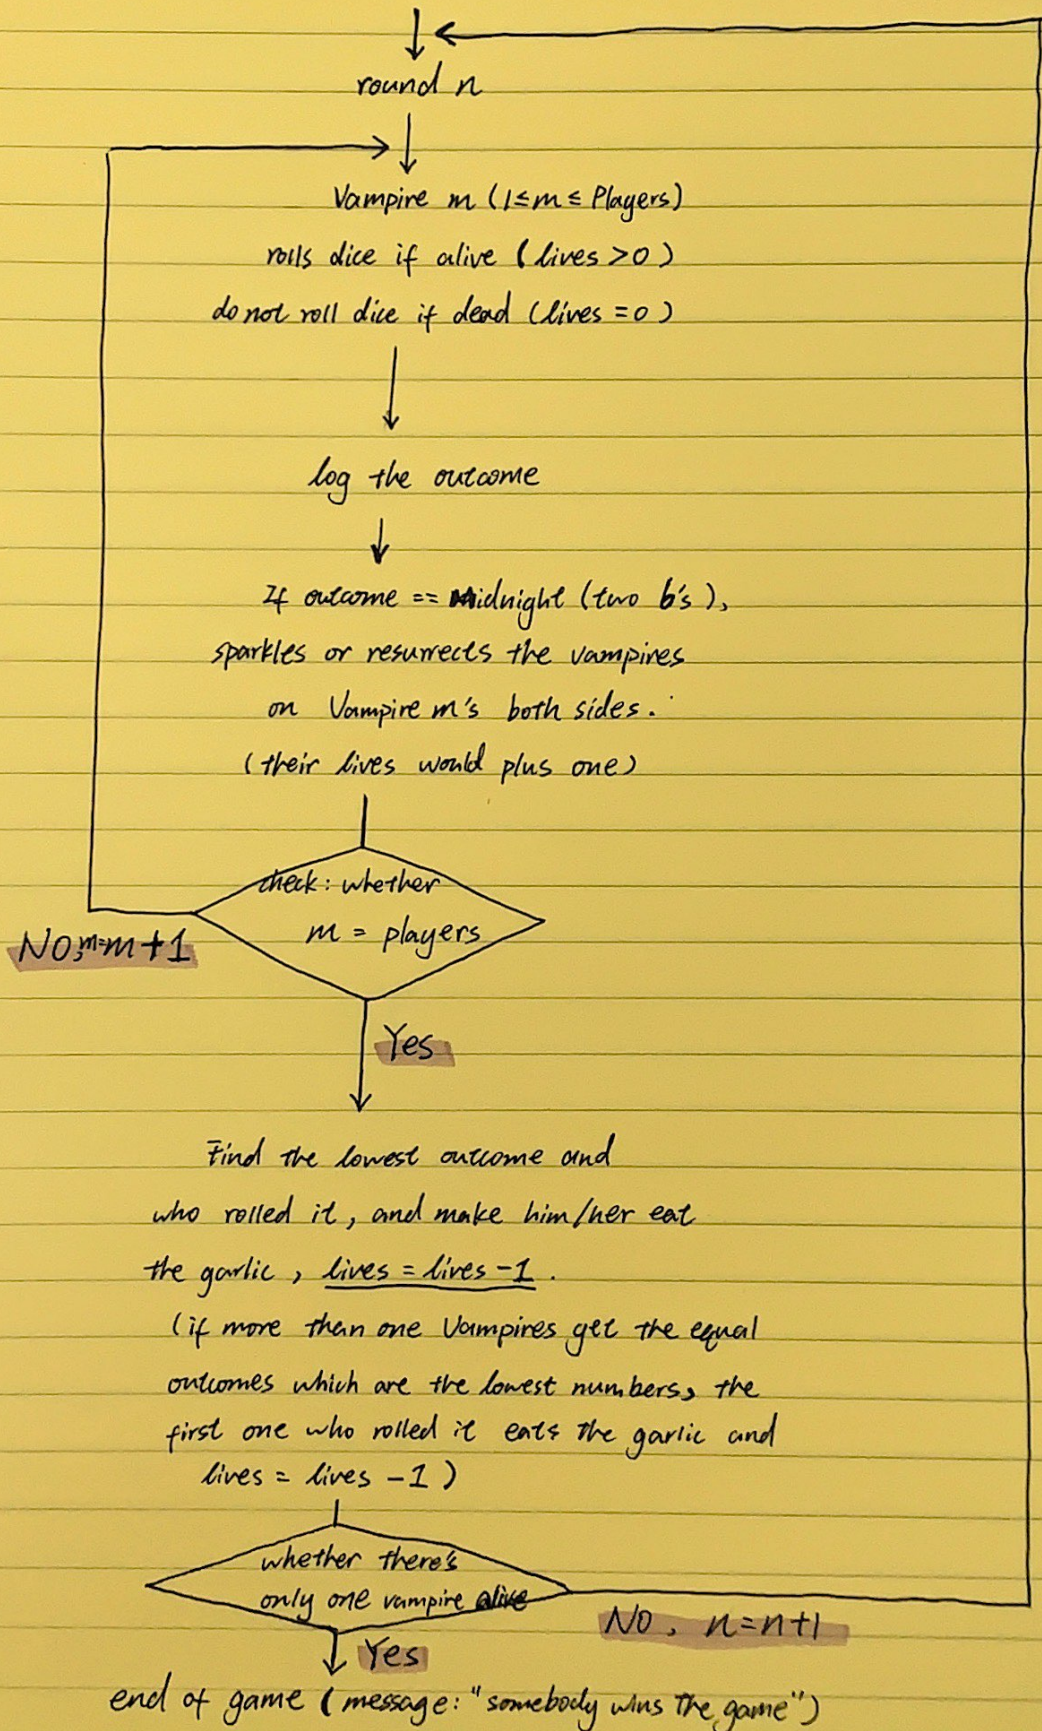 round n
Vampire m (1≤m≤Players)
rolls dice if alive (lives>0)
do not roll dice if dead (lives=0)
log the outcome
If outcome == Midnight (two 6's),
sparkles or resurrects the vampires
on Vampire m's both sides.
(their lives would plus one)
check: whether
m = players
No, m=m+1
Yes
Find the lowest outcome and
who rolled it, and make him/her eat
the garlic, lives = lives -1.
(if more than one Vampires get the equal
outcomes which are the lowest numbers, the
first one who rolled it eats the garlic and
lives = lives -1)
whether there's
only one vampire alive
No, n=n+1
Yes
end of game (message: "somebody wins the game")